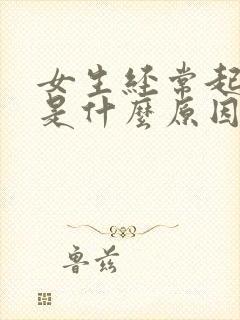 女生经常起
是什麽原因
鲁兹